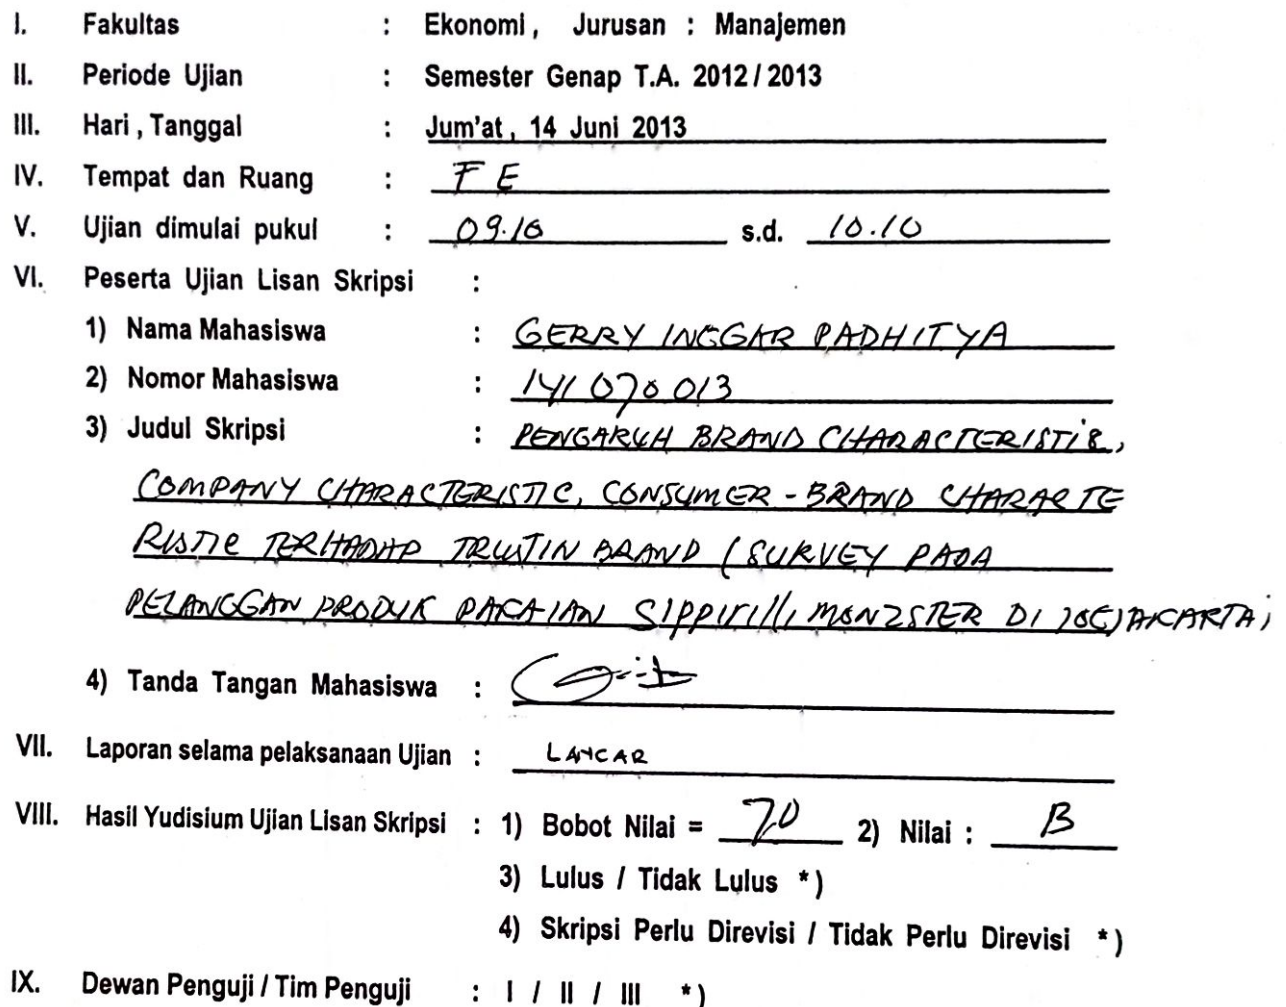 I. Fakultas : Ekonomi, Jurusan : Manajemen
II. Periode Ujian : Semester Genap T.A. 2012 / 2013
III. Hari, Tanggal : Jum'at, 14 Juni 2013
IV. Tempat dan Ruang : FE
V. Ujian dimulai pukul : 09.10 s.d. 10.10
VI. Peserta Ujian Lisan Skripsi :
1) Nama Mahasiswa : GERRY INGGAR PADHITYA
2) Nomor Mahasiswa : 141 070 013
3) Judul Skripsi : PENGARUH BRAND CHARACTERISTIC,
COMPANY CHARACTERISTIC, CONSUMER - BRAND CHARACTE
RISTIC TERHADAP TRUST IN BRAND (SURVEY PADA
PELANGGAN PRODUK PAKAIAN MONZSTER DI JOGJAKARTA)
4) Tanda Tangan Mahasiswa :
VII. Laporan selama pelaksanaan Ujian : LANCAR
VIII. Hasil Yudisium Ujian Lisan Skripsi : 1) Bobot Nilai = 70 2) Nilai : B
3) Lulus / Tidak Lulus *)
4) Skripsi Perlu Direvisi / Tidak Perlu Direvisi *)
IX. Dewan Penguji / Tim Penguji : I / II / III *)